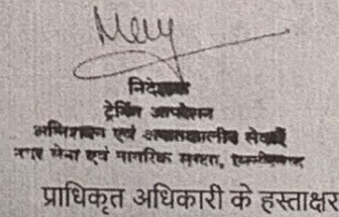 निदेशक
ट्रेनिंग आपरेशन
अग्निशमन एवं आपातकालीन सेवाऐं
नगर सेना एवं नागरिक सुरक्षा,
प्राधिकृत अधिकारी के हस्ताक्षर